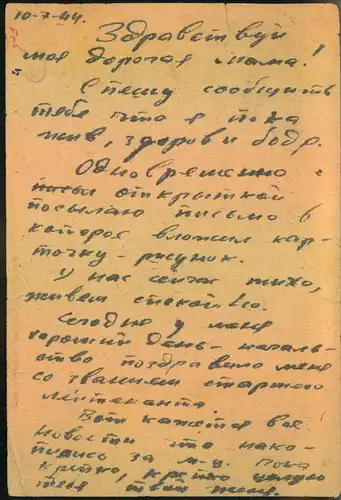 10-7-44.
Здравствуй
моя дорогая мама!
Спешу сообщить
тебе что я пока
жив, здоров и бодр.
Одновременно с
этой открыткой
посылаю письмо в
которое вложил кар-
точку - рисунок.
У нас сейчас тихо,
живем спокойно.
Сегодня у меня
хороший день - началь-
ство поздравило меня
со званием старшего
лейтенанта.
Вот кажется все
новости что нако-
пились за Пока
крепко, крепко целую
тебя твой